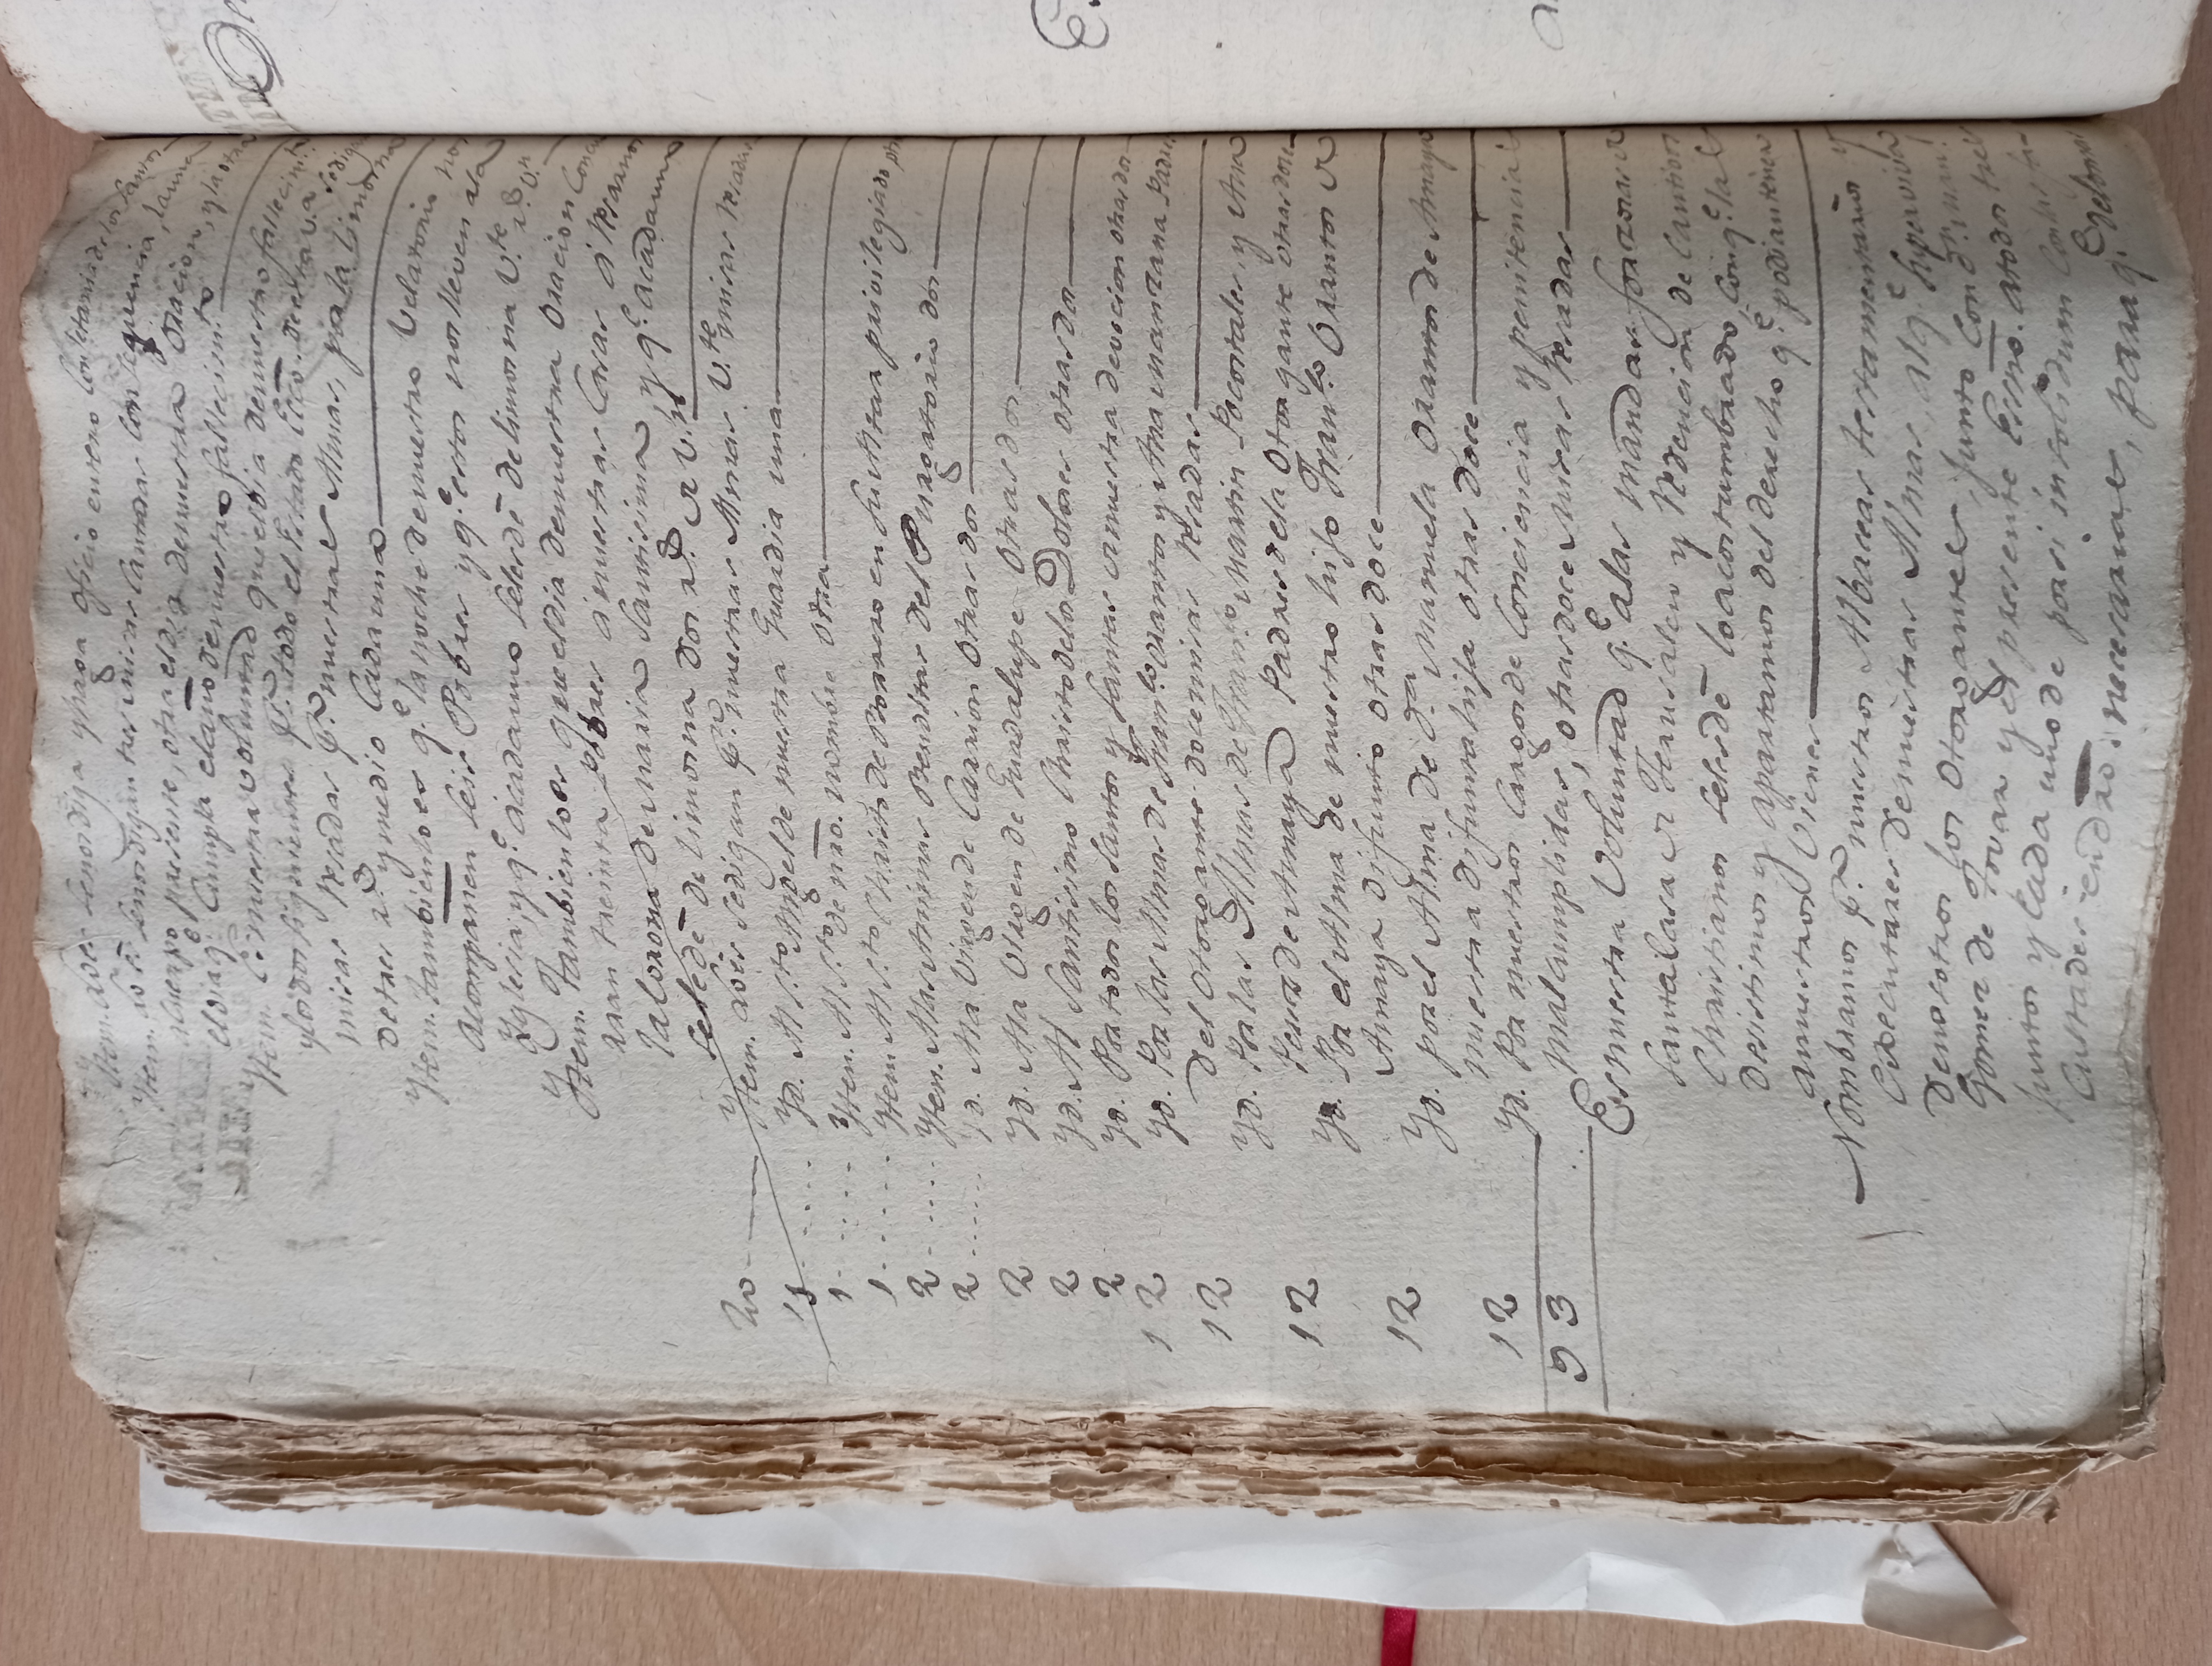 Ytem. Loes se nos diga y haga oficio entero con letania de los Santos
Ytem. Lo es se nos digan tres misas cantadas con sequencia, la una
a cuerpo presente, otra el dia de nuestra Oracion, y la otra
el dia q.e cumpla el año de nuestro fallecim.to
Ytem. Es nuestra voluntad que el dia de nuestro fallecim.to
y los dos siguientes p.r todo el Estado Ecco. de esta v.a se digan
misas resadas p.r nuestras Almas, por la limosna
de tres r.s y medio cada una
Ytem. tambien lo es q.e la noche de nuestro Velatorio nos
acompañen seis Pobres y q.e estos nos lleven a la
Yglesia, y q.e á cada uno seles dé de limosna v.te r.s v.n
Ytem. Tambien lo es que el dia de nuestra oracion concu
rran treinta Pobres á nuestras Casas á resarnos
la Corona de Maria Santisima, y q.e a cada uno
se le dé de limosna dos r.s de v.n
20 Ytem. Lo es se digan p.r nuestras Almas v.te misas resadas
1 Yd. Al S.to Angel de nuestra Guardia una
1 Yten. Al S.to de nro. nombre otra
1 Ytem Al S.to Christo de Borrero en su Altar privilegiado otra
2 Yten. A las Animas Benditas del Purgatorio dos
2 Yd. A la Virgen de Carrion otras dos
2 Yd. A la Virgen de Guadalupe otras dos
2 Yd. Al Santisimo Christo de los Dolores otras dos
2 Yd. Por todos los Santos y Santas de nuestra devocion otras dos
12 Yd. Por las Almas de Fran.co Orantos y Ana Manzana Padres
del Otorgante doce misas resadas
12 Yd. Por las Almas de Fran.co Martin Pocostales, y Ana
Perez de Amaya Padres de la Otorgante otras doce
12 Yd. Por el Alma de nuestro hijo Fran.co Orantos de
Amaya difunto otras doce
12 Yd. por el Alma de d.a Manuela Orantos de Amaya
nuestra difunta hija otras doce
12 Yd. Por nuestros cargos de Conciencia y penitencias
mal cumplidas, otras doce misas resadas
93
Es nuestra Voluntad q.e a las mandas forzosas de
Santa Casa de Jerusalen y redencion de Cautivos
Christianos seles dé lo acostumbrado, con q.e las
desistimos y apartamos del derecho q.e podian tener
a nuestros Vienes
Nombramos p.r nuestros Albaceas testamentarios y
executares de nuestras Almas, al q.e superviva
de nosotros los Otorgantes, junto con d.n Man.l
Gomez de Tovar y el presente Essno. a todos tres
juntos y cada uno de por si in solidum con las fa-
cultades en dro. necesarias, para q.e de lo mas